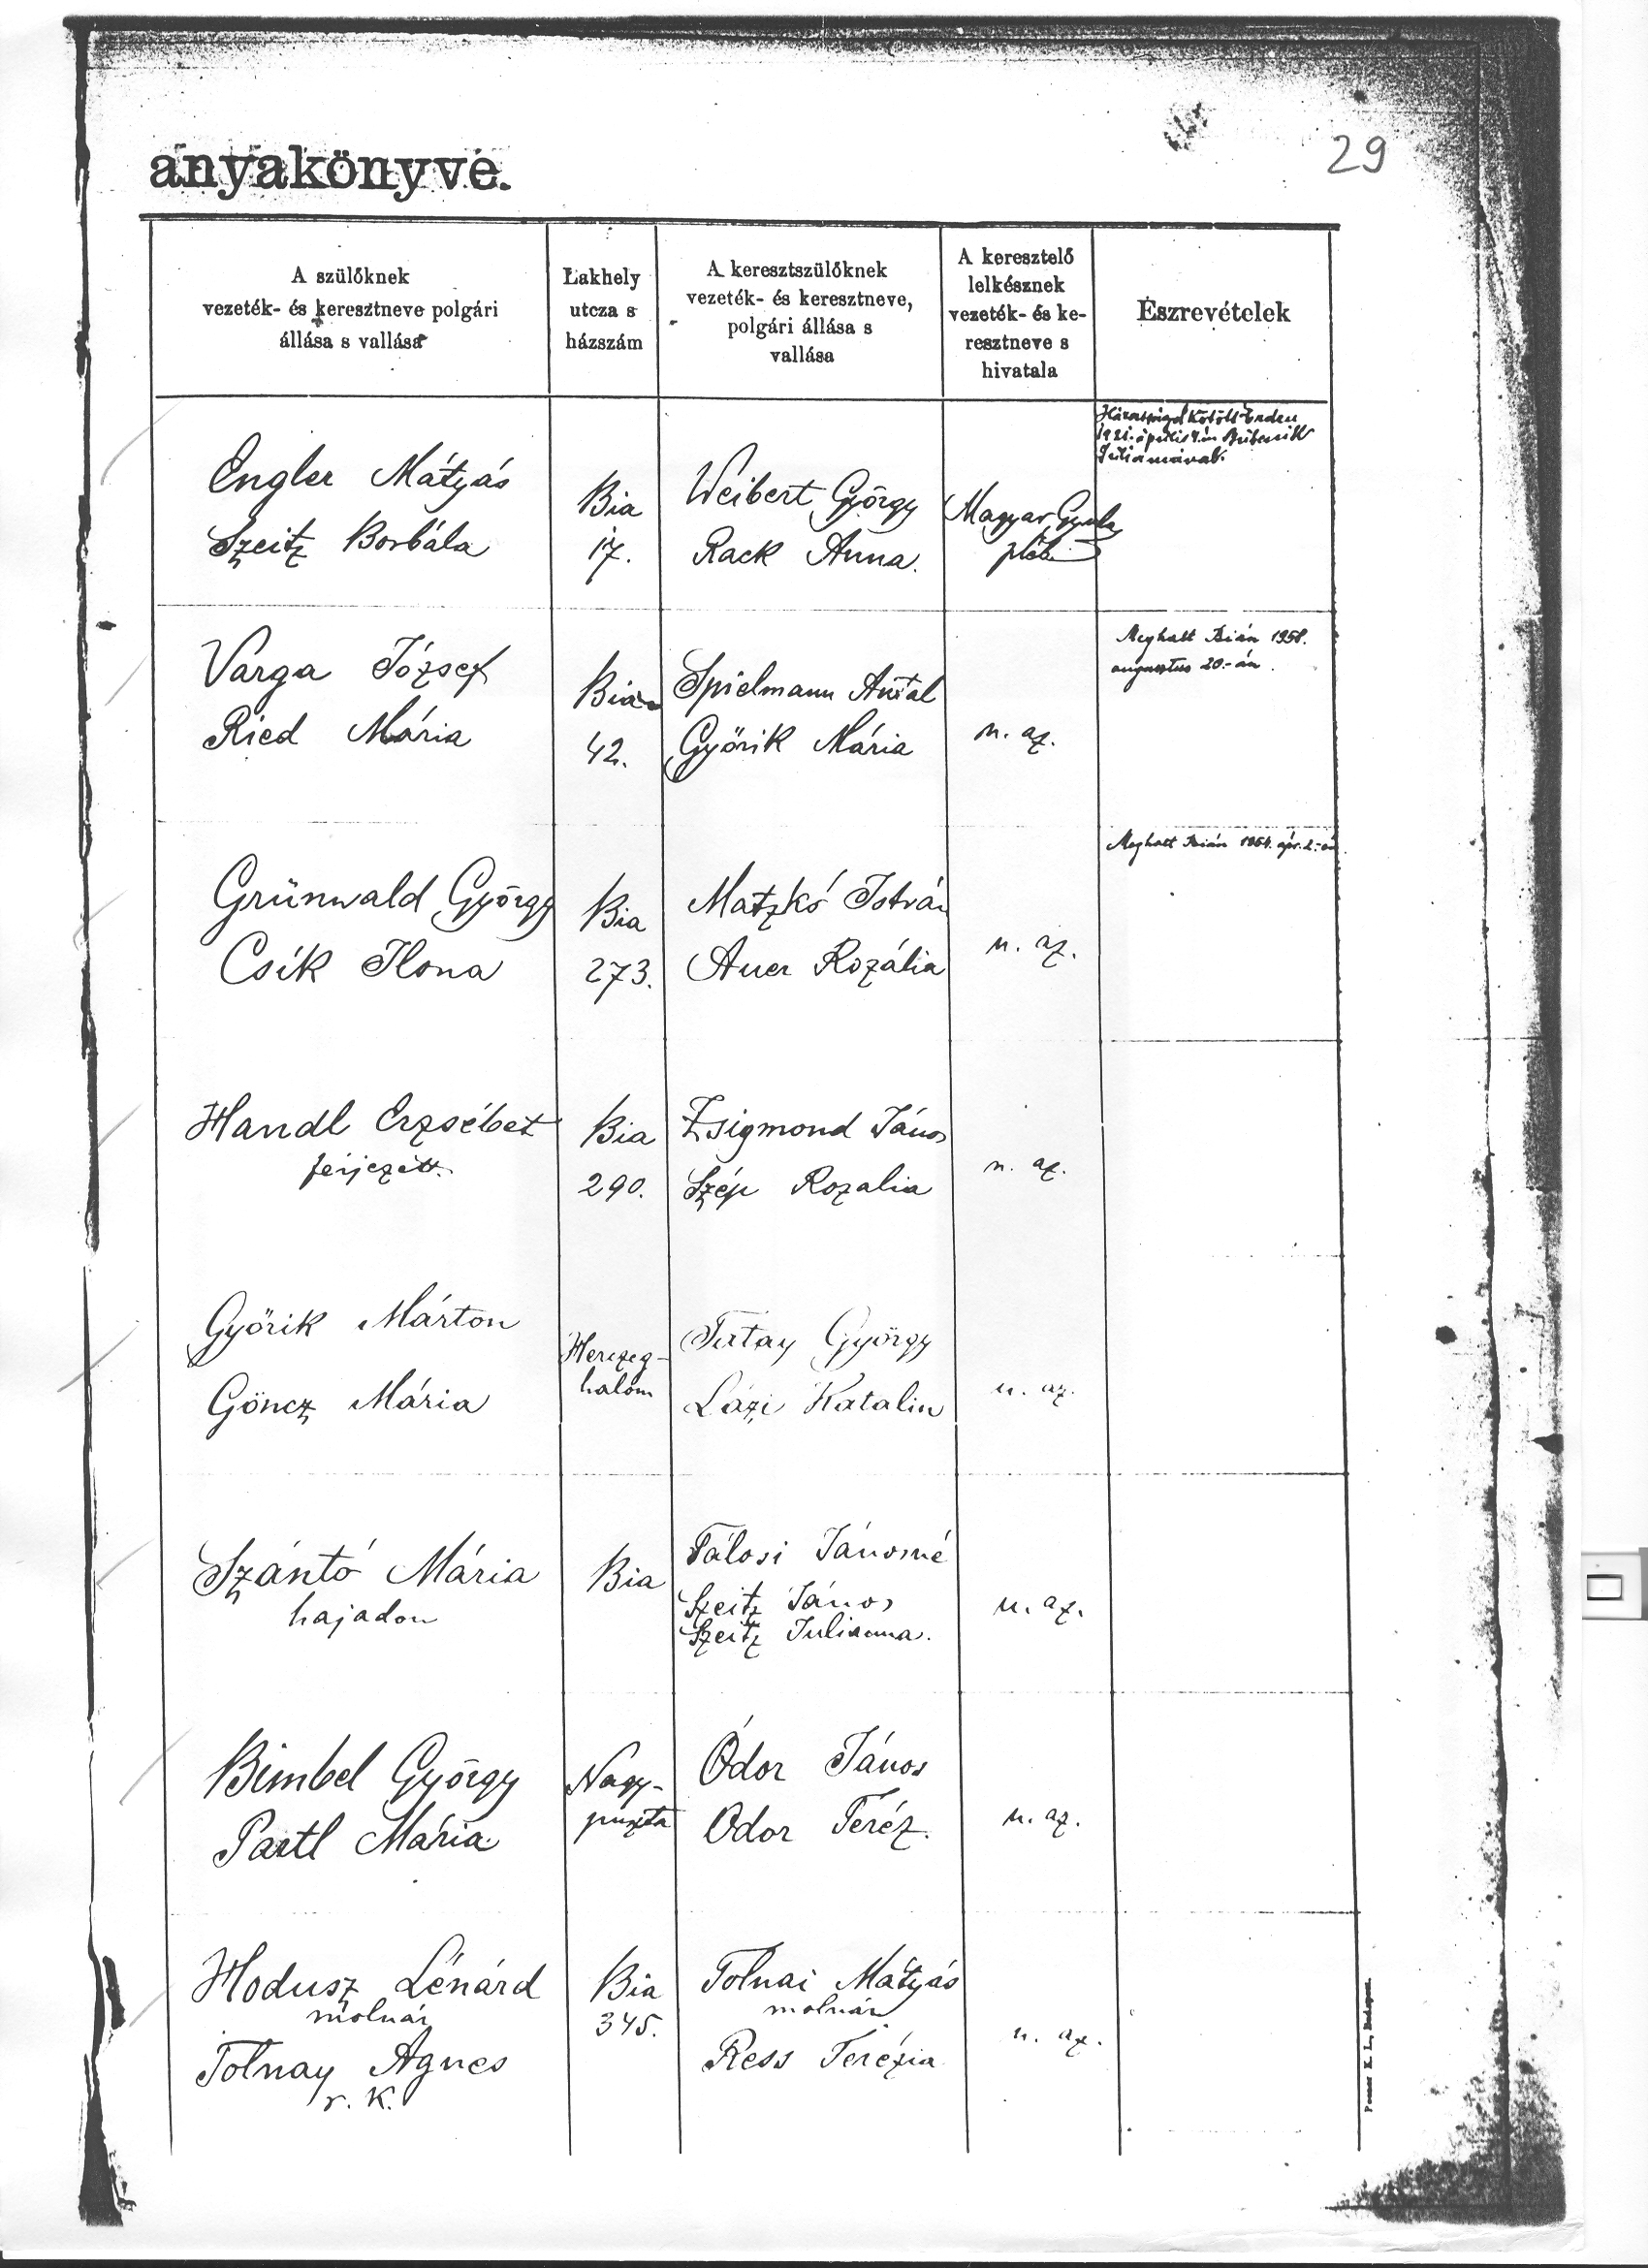 29
anyakönyve.
A szülőknek
vezeték- és keresztneve polgári
állása s vallása
Lakhely
utcza s
házszám
A keresztszülőknek
vezeték- és keresztneve,
polgári állása s
vallása
A keresztelő
lelkésznek
vezeték- és ke-
resztneve s
hivatala
Észrevételek
Engler Mátyás
Szeitz Borbála
Bia
17.
Weibert György
Rack Anna.
Magyar Gyula
pléb
Házasságot kötött Érden
1921. április
Juliannával.
Varga József
Ried Mária
Bia
42.
Spielmann Antal
Győrik Mária
u. az.
Meghalt Bián 1958.
augusztus 20.-án.
Grünwald György
Csík Ilona
Bia
273.
Matzkó István
Auer Rozália
u. az.
Meghalt Bián 1964. ápr. 2.-án
Handl Erzsébet
férjezett.
Bia
290.
Zsigmond János
Szép Rozalia
u. az.
Győrik Márton
Göncz Mária
Herczeg-
halom
Tatay György
Lázi Katalin
u. az.
Szántó Mária
hajadon
Bia
Tálosi Jánosné
Szeitz János
Szeitz Julianna.
u. az.
Bimbel György
Partl Mária
Nagy-
puszta
Ódor János
Odor Teréz.
u. az.
Hodusz Lénárd
molnár
Tolnay Agnes
r. K.
Bia
345.
Tolnai Mátyás
molnár
Ress Terézia
u. az.